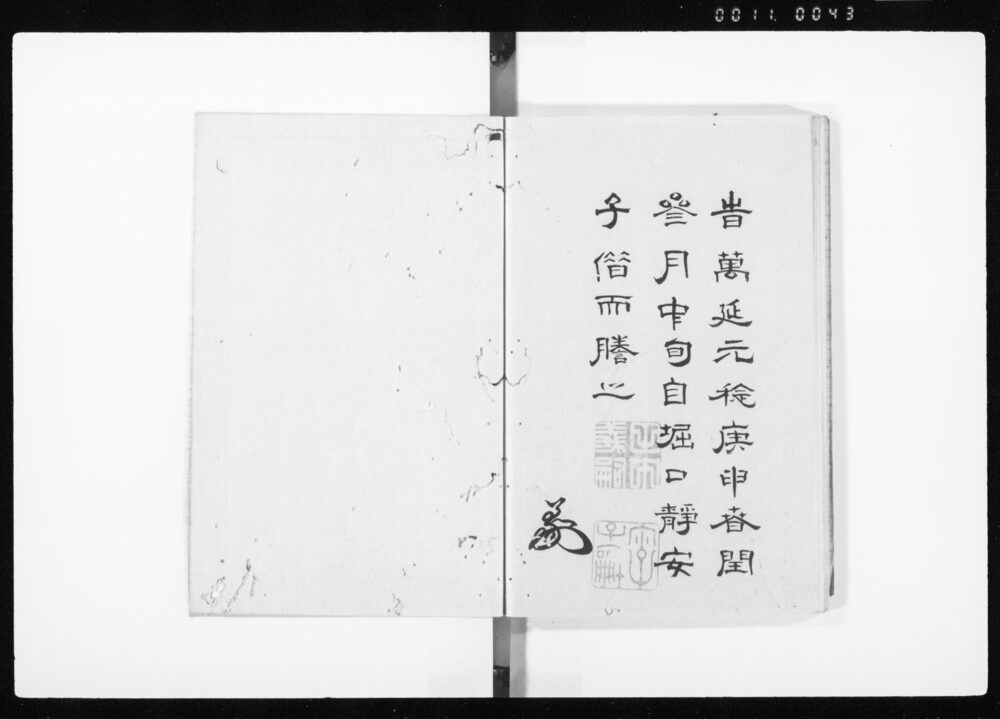 0011 0043
旹萬延元稔庚申春閏
叄月中旬自堀口静安
子借而謄之